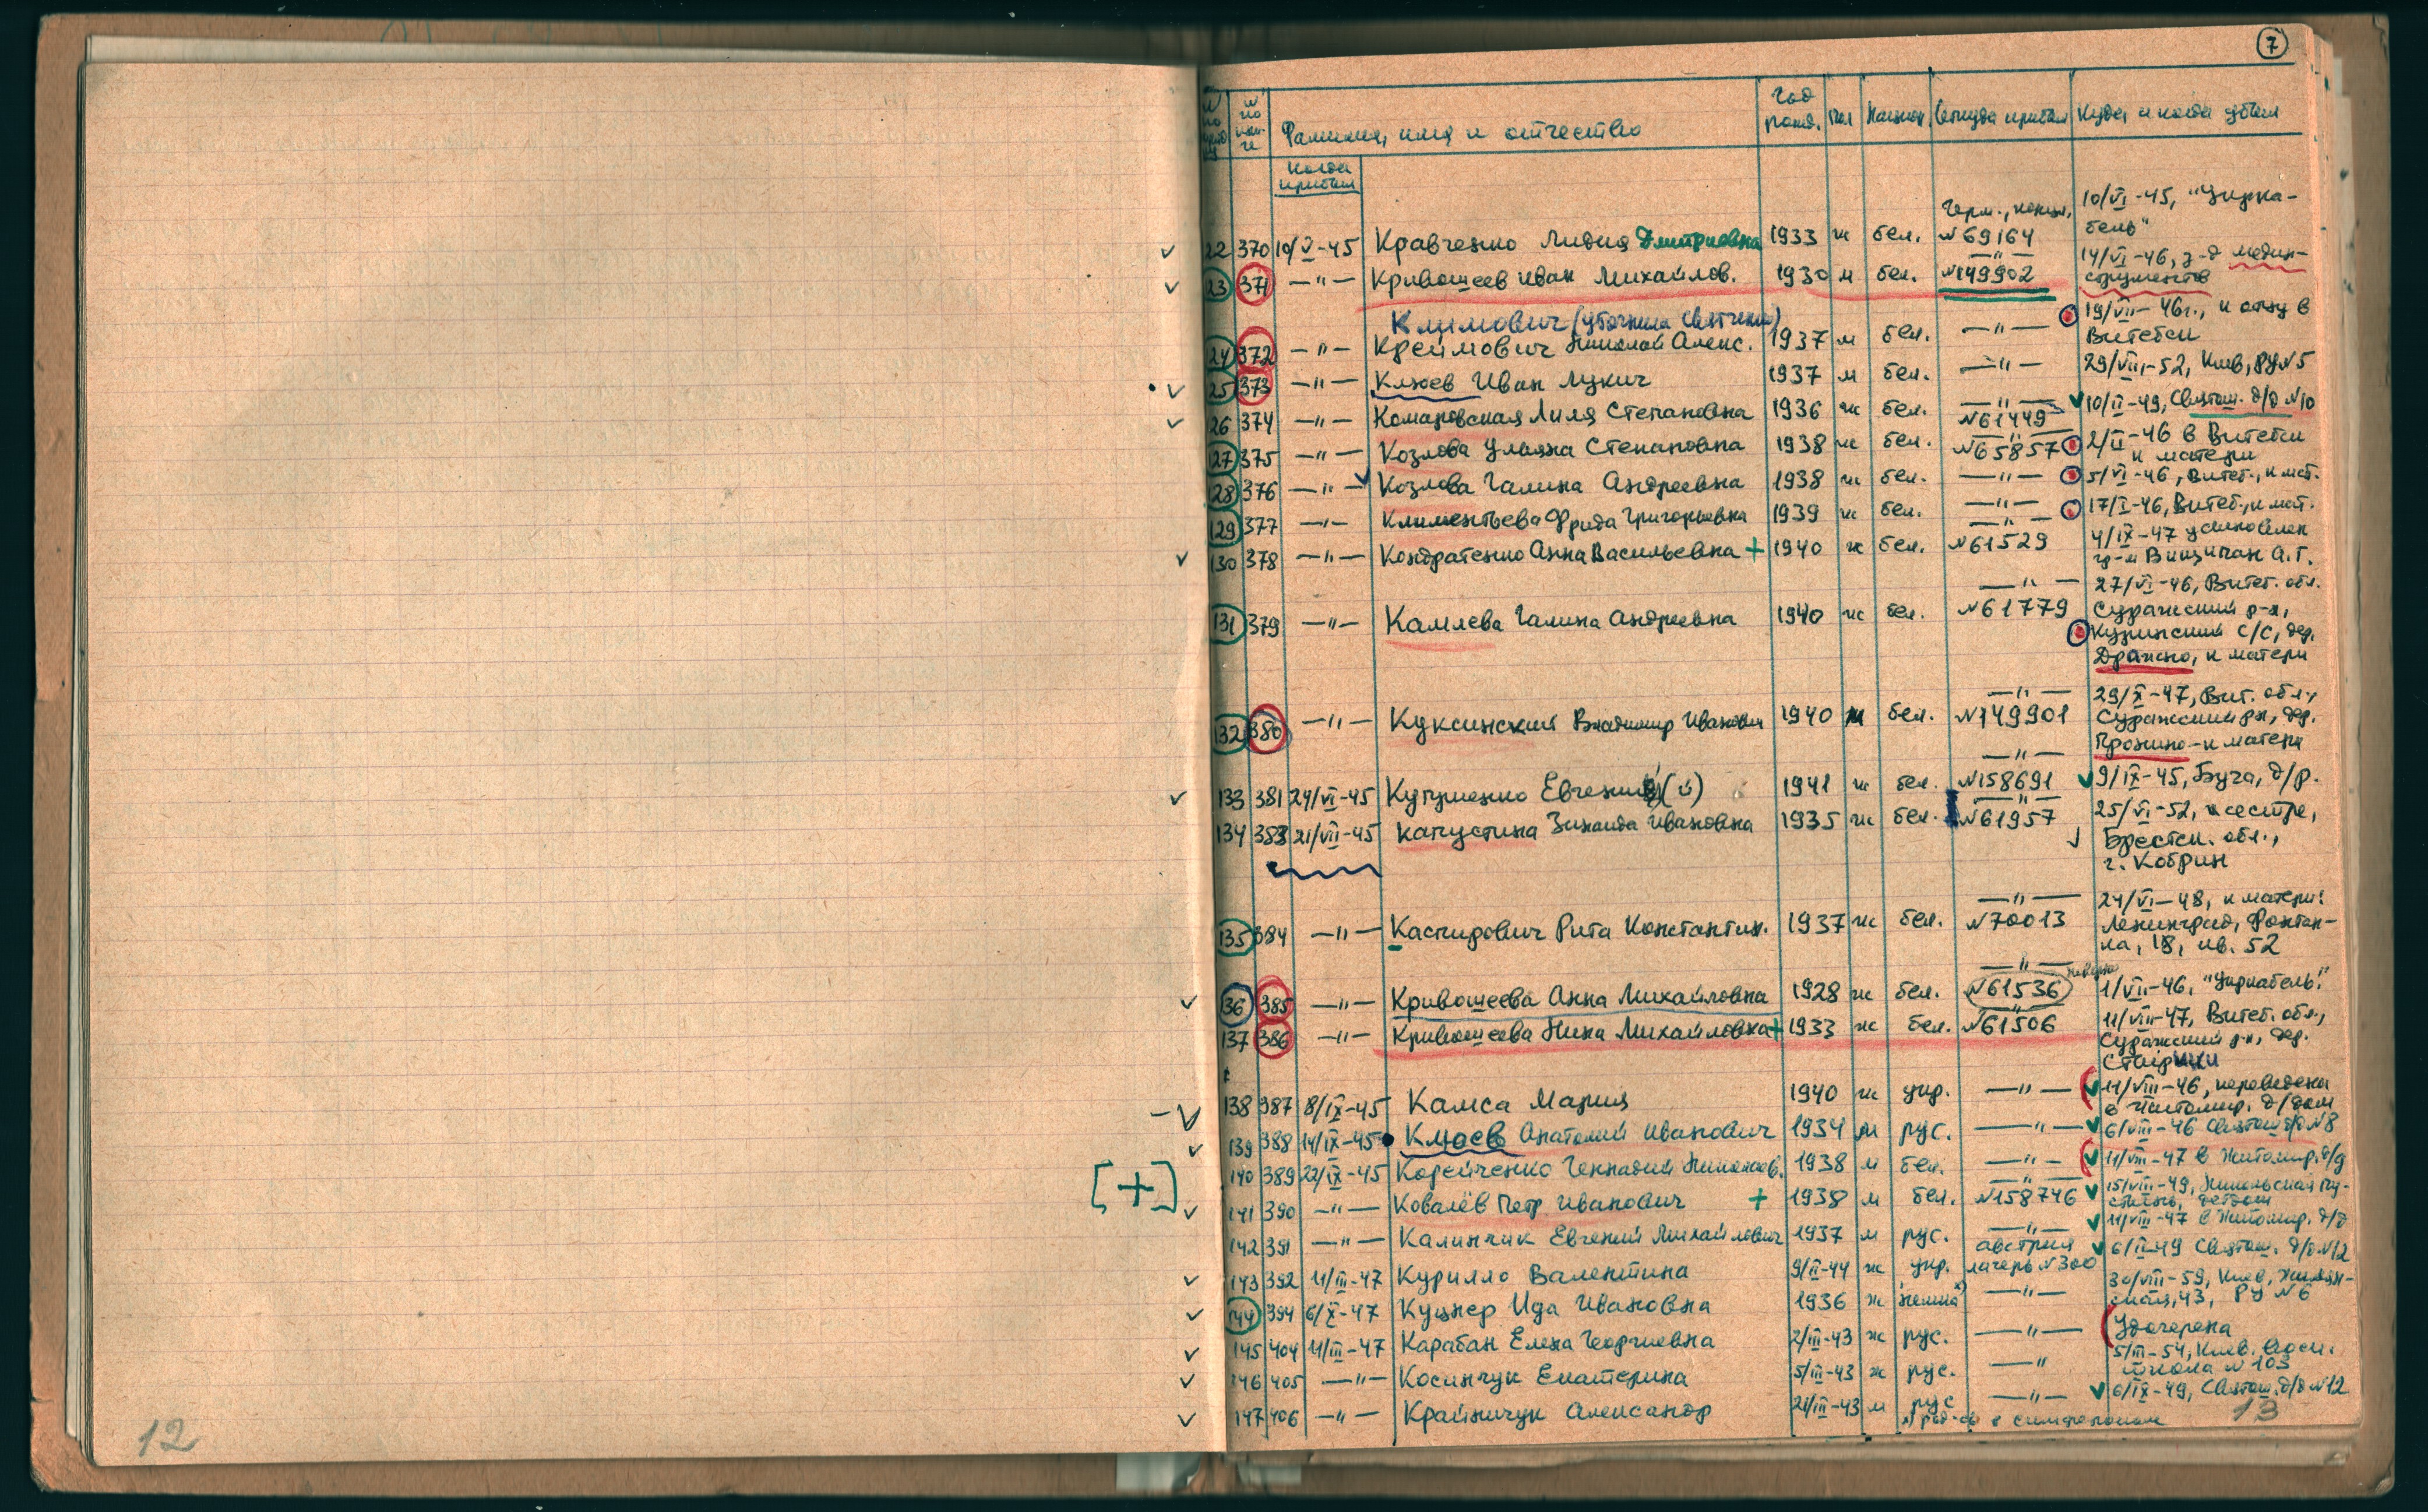 7
Фамилия, имя и отчество Год рожд. Пол Национ. Откуда прибыл Куда и когда убыл
Когда прибыл
22 370 10/V-45 Кравченко Лидия Дмитриевна 1933 ж бел. Герм., концл. №69164 10/VI-45, "Укрка-
бель"
23 371 —"— Кривошеев Иван Михайлов. 1930 м бел. —"— №149902 14/VI-46, з-д медин-
струментов
Климович (уточнила Святченко)
24 372 —"— Креймович Николай Алекс. 1937 м бел. —"— 19/VII-46г., к отцу в
Витебск
25 373 —"— Клюев Иван Лукич 1937 м бел. —"— 29/VII-52, Киев, РУ№5
26 374 —"— Комаровская Лиля Степановна 1936 ж бел. —"— №61449 10/II-49, Святош. д/д №10
27 375 —"— Козлова Ульяна Степановна 1938 ж бел. —"— №65857 2/II-46 в Витебск
к матери
28 376 —"— Козлова Галина Андреевна 1938 ж бел. —"— 5/VI-46, Витеб., к мат.
129 377 —"— Климентьева Фрида Григорьевна 1939 ж бел. —"— 17/I-46, Витеб., к мат.
130 378 —"— Кондратенко Анна Васильевна + 1940 ж бел. —"— №61529 4/IX-47 усыновлен
гр-м Винципан А.Г.
131 379 —"— Камлева Галина Андреевна 1940 ж бел. —"— №61779 27/VI-46, Витеб. обл.
Суражский р-н,
Куринский с/с, дер.
Дражно, к матери
132 380 —"— Куксинский Владимир Иванович 1940 м бел. —"— №149901 29/X-47, Вит. обл.,
Суражский рн, дер.
Пронино-к матери
133 381 24/VI-45 Куприенко Евгения (й) 1941 ж бел. —"— №158691 9/IX-45, Буча, д/р.
134 383 21/VII-45 Капустина Зинаида Ивановна 1935 ж бел. —"— №61957 25/VI-52, к сестре,
Брестск. обл.,
г. Кобрин
135 384 —"— Каспирович Рита Константин. 1937 ж бел. —"— №70013 24/VI-48, к матери:
Ленинград, Фонтан-
ка, 18, кв. 52
136 385 —"— Кривошеева Анна Михайловна 1928 ж бел. —"— №61536 неверно 1/VII-46, "Укркабель."
137 386 —"— Кривошеева Нина Михайловна + 1933 ж бел. —"— №61506 11/VIII-47, Витеб. обл.,
Суражский р-н, дер.
138 387 8/IX-45 Камса Мария 1940 ж укр. —"— 11/VIII-46, переведена
в Житомир. д/дом
139 388 14/IX-45 Клюев Анатолий Иванович 1934 м рус. —"— 6/VIII-46 Святош д/д №8
[+] 140 389 22/IX-45 Корейченко Геннадий Николаев. 1938 м бел. —"— 11/VIII-47 в Житомир. д/д
141 390 —"— Ковалёв Петр Иванович + 1938 м бел. №158746 15/VIII-49, Никольская Пу-
стынь, детдом
142 391 —"— Калинчик Евгений Михайлович 1937 м рус. —"— 11/VIII-47 в Житомир. д/д
143 392 11/III-47 Курилло Валентина 9/II-44 ж укр. Австрия лагерь №300 6/II-49 Святош. д/д №12
144 394 6/X-47 Кушнер Ида Ивановна 1936 ж немка —"— 30/VIII-59, Киев, Жилян-
ская, 43, РУ №6
145 404 11/III-47 Карабан Елена Георгиевна 2/III-43 ж рус. —"— Удочерена
146 405 —"— Косинчук Екатерина 5/III-43 ж рус. —"— 5/III-54, Киев.
школа №103
147 406 —"— Крайничук Александр 21/III-43 м рус —"— 6/IX-49, Святош. д/д №12
12
13